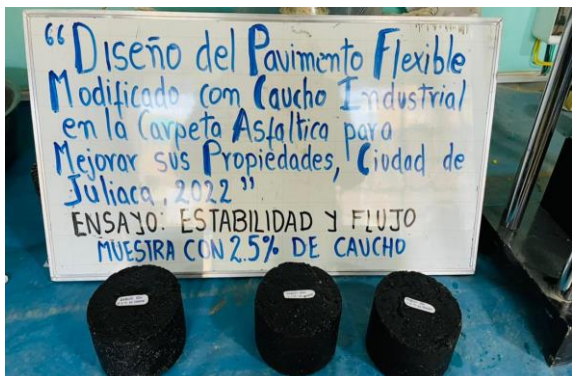 “Diseño del Pavimento Flexible
Modificado con Caucho Industrial
en la Carpeta Asfaltica para
Mejorar sus Propiedades, Ciudad de
Juliaca, 2022”
ENSAYO: ESTABILIDAD Y FLUJO
MUESTRA CON 2.5% DE CAUCHO